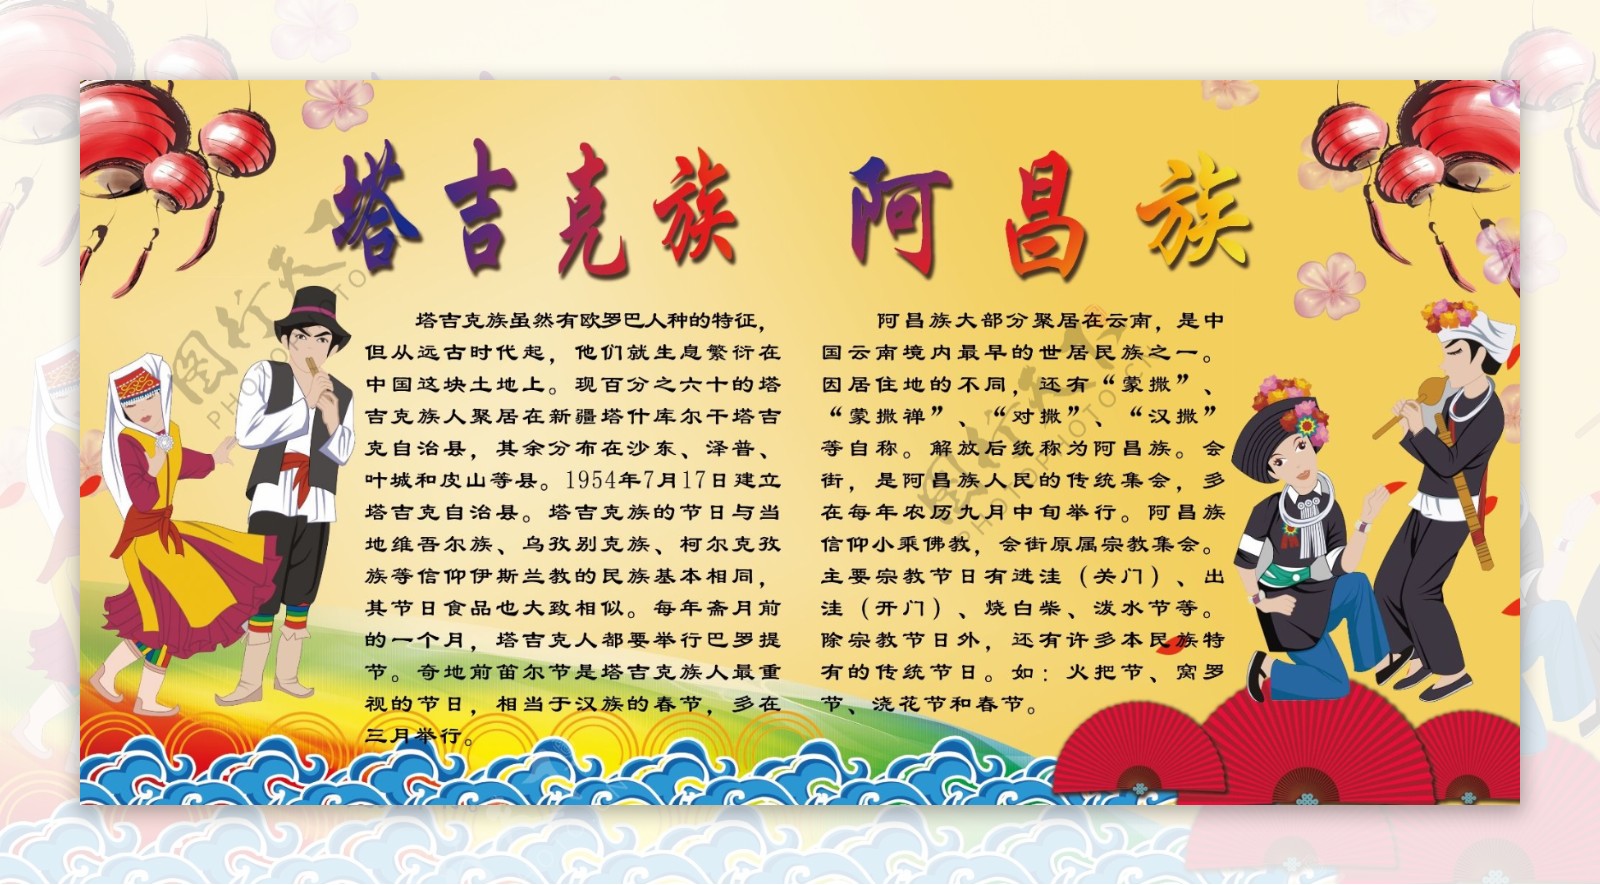 塔吉克族
塔吉克族虽然有欧罗巴人种的特征，
但从远古时代起，他们就生息繁衍在
中国这块土地上。现百分之六十的塔
吉克族人聚居在新疆塔什库尔干塔吉
克自治县，其余分布在沙东、泽普、
叶城和皮山等县。1954年7月17日建立
塔吉克自治县。塔吉克族的节日与当
地维吾尔族、乌孜别克族、柯尔克孜
族等信仰伊斯兰教的民族基本相同，
其节日食品也大致相似。每年斋月前
的一个月，塔吉克人都要举行巴罗提
节。奇地前笛尔节是塔吉克族人最重
视的节日，相当于汉族的春节，多在
三月举行。
阿昌族
阿昌族大部分聚居在云南，是中
国云南境内最早的世居民族之一。
因居住地的不同，还有“蒙撒”、
“蒙撒禅”、“对撒”、“汉撒”
等自称。解放后统称为阿昌族。会
街，是阿昌族人民的传统集会，多
在每年农历九月中旬举行。阿昌族
信仰小乘佛教，会街原属宗教集会。
主要宗教节日有进洼（关门）、出
洼（开门）、烧白柴、泼水节等。
除宗教节日外，还有许多本民族特
有的传统节日。如：火把节、窝罗
节、浇花节和春节。